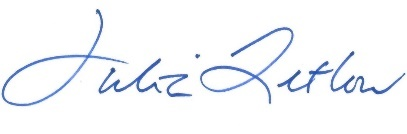 Julia Letlow